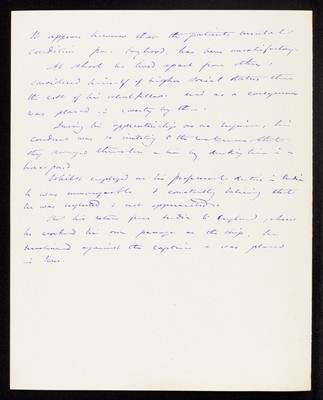 It appears however that the patient's mental
condition from boyhood has been unsatisfactory.
At School he lived apart from others,
considered himself of higher social status than
the rest of his schoolfellows and as a consequence
was placed in Coventry by them.
During his apprenticeship as an Engineer, his
conduct was so insulting to the workmen that
they revenged themselves on him by ducking him in a
horse pond.
Whilst employed on his professional duties in India
he was unmanageable & constantly believing that
he was neglected & not appreciated.
On his return from India to England, where
he worked his own passage on the ship, he
mutinied against the Captain & was placed
in Irons.